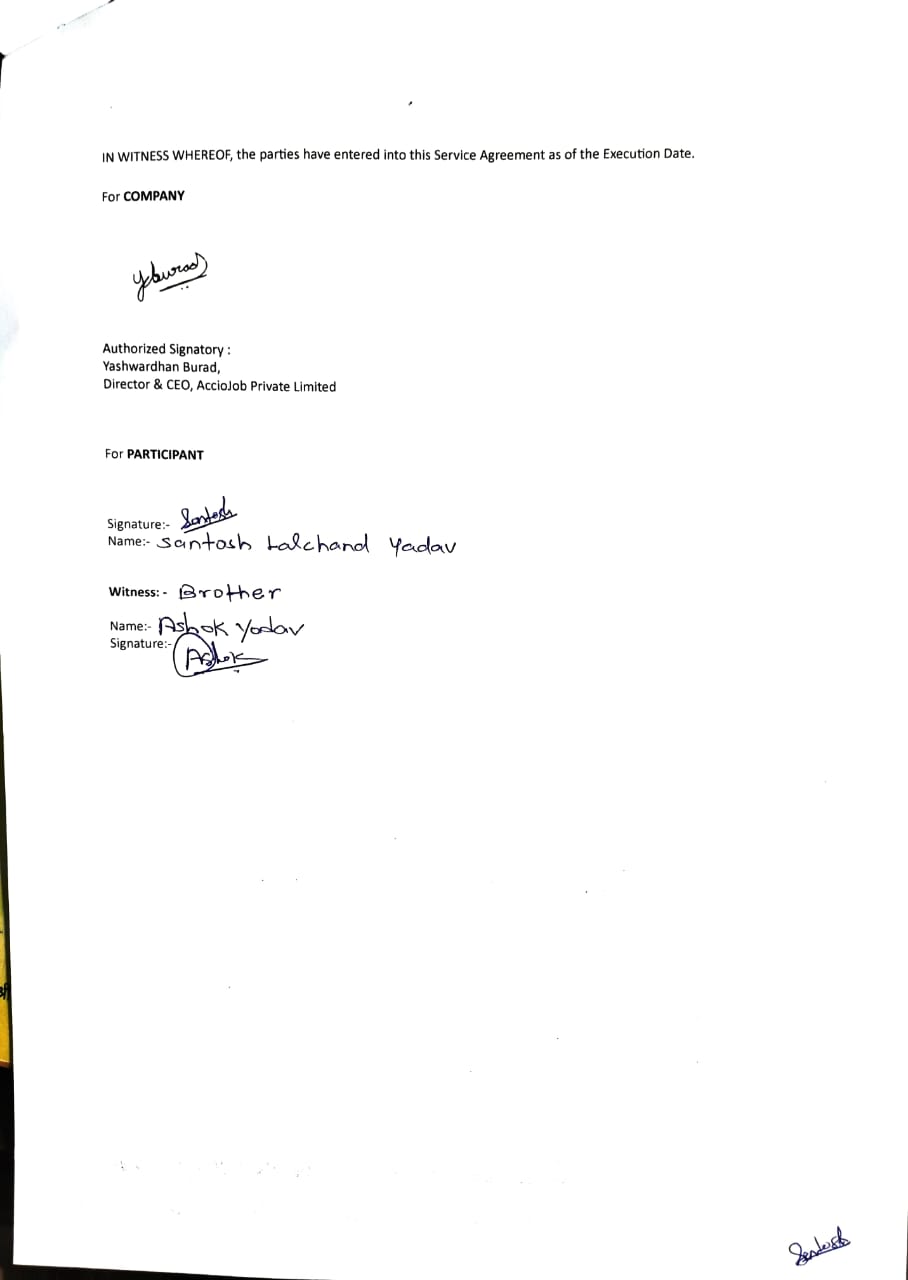 IN WITNESS WHEREOF, the parties have entered into this Service Agreement as of the Execution Date.
For COMPANY
yburad
Authorized Signatory :
Yashwardhan Burad,
Director & CEO, AccioJob Private Limited
For PARTICIPANT
Signature:- Santosh
Name:- Santosh Lalchand Yadav
Witness: - Brother
Name:- Ashok Yadav
Signature:- Ashok
Santosh